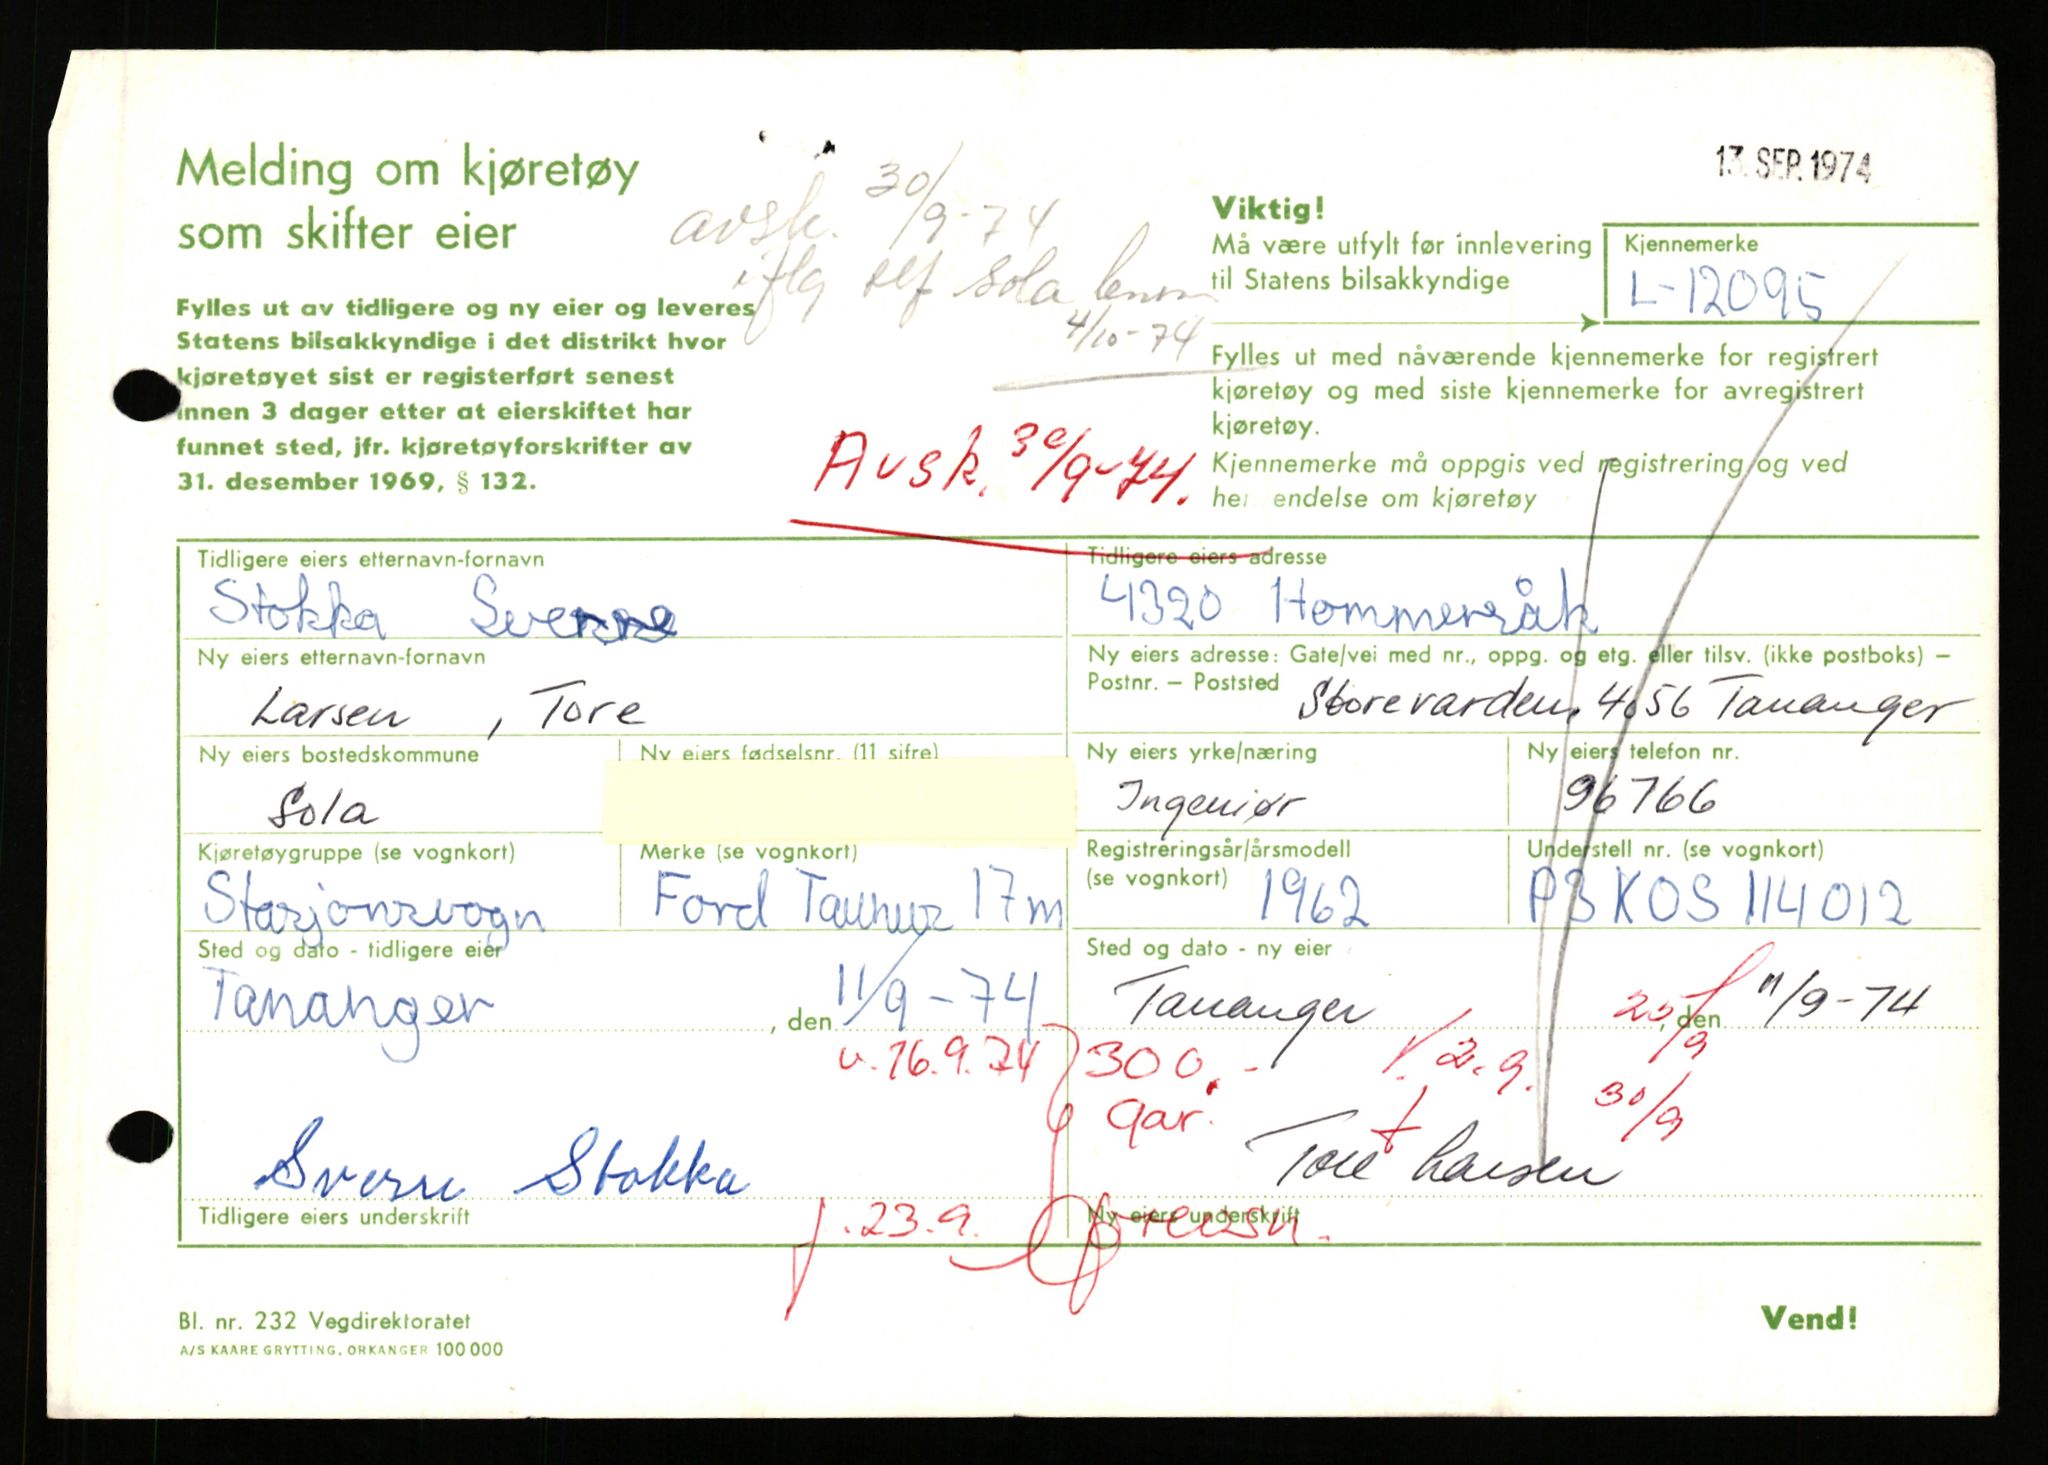 13. SEP. 1974
Melding om kjøretøy
som skifter eier
avsk. 30/9-74
iflg tlf Sola
4/10-74
Fylles ut av tidligere og ny eier og leveres
Statens bilsakkyndige i det distrikt hvor
kjøretøyet sist er registerført senest
innen 3 dager etter at eierskiftet har
funnet sted, jfr. kjøretøyforskrifter av
31. desember 1969, § 132.
Viktig!
Må være utfylt før innlevering
til Statens bilsakkyndige
Kjennemerke
L-12095
Fylles ut med nåværende kjennemerke for registrert
kjøretøy og med siste kjennemerke for avregistrert
kjøretøy.
Kjennemerke må oppgis ved registrering og ved
endelse om kjøretøy
Avsk. 30/9-74.
Tidligere eiers etternavn-fornavn
Stokka Sverre
Tidligere eiers adresse
4320 Hommersåk
Ny eiers etternavn-fornavn
Larsen, Tore
Ny eiers adresse: Gate/vei med nr., oppg. og etg. eller tilsv. (ikke postboks) –
Postnr. – Poststed
Storevarden, 4056 Tananger
Ny eiers bostedskommune
Sola
Ny eiers fødselsnr. (11 sifre)
Ny eiers yrke/næring
Ingeniør
Ny eiers telefon nr.
96766
Kjøretøygruppe (se vognkort)
Stasjonsvogn
Merke (se vognkort)
Ford Taunus 17m
Registreringsår/årsmodell
(se vognkort)
1962
Understell nr. (se vognkort)
P3KOS114012
Sted og dato - tidligere eier
Tananger, den 11/9-74
Sted og dato - ny eier
Tananger, den 11/9-74
25/9
v. 16.9.74
300.-
gar.
2.9.
30/9
Sverre Stokka
Tore Larsen
Tidligere eiers underskrift
Ny eiers underskrift
f. 23.9.
Bl. nr. 232 Vegdirektoratet
A/S KAARE GRYTTING, ORKANGER 100 000
Vend!